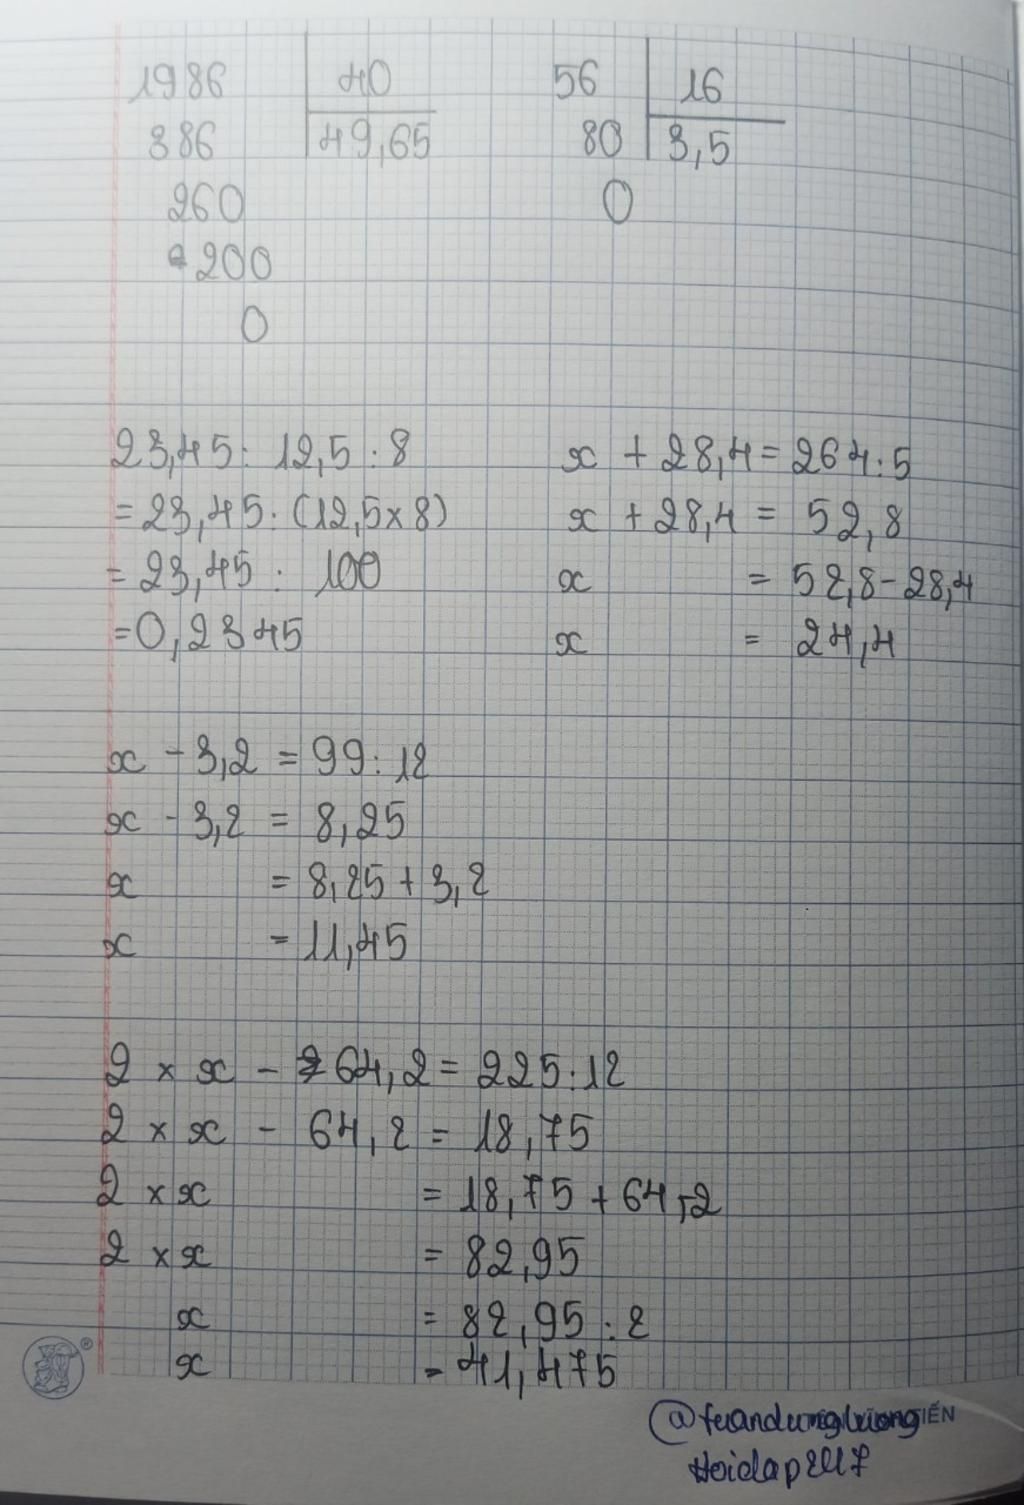 1986 40
386 49,65
260
200
0
56 16
80 3,5
0
23,45 : 12,5 : 8
= 23,45 : (12,5 x 8)
= 23,45 : 100
= 0,2345
x + 28,4 = 264 : 5
x + 28,4 = 52,8
x = 52,8 - 28,4
x = 24,4
x - 3,2 = 99 : 12
x - 3,2 = 8,25
x = 8,25 + 3,2
x = 11,45
2 x x - 64,2 = 225 : 12
2 x x - 64,2 = 18,75
2 x x = 18,75 + 64,2
2 x x = 82,95
x = 82,95 : 2
x = 41,475